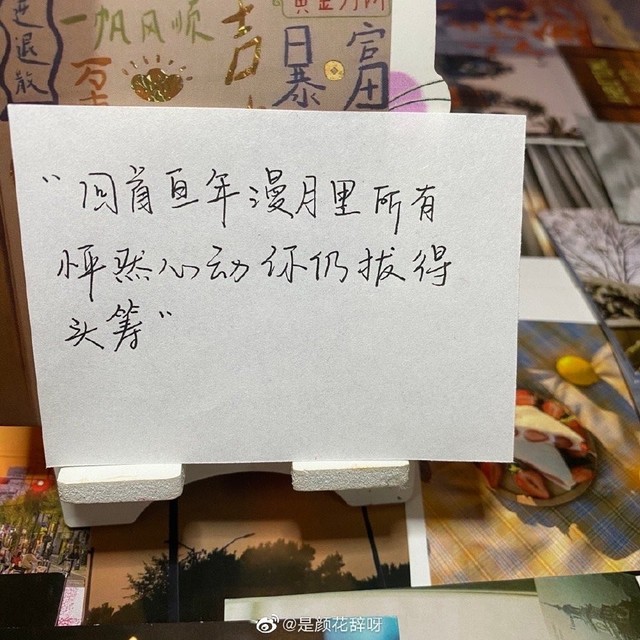 退散
一帆风顺
吉
日暴
富
“回首亘年漫月里所有
怦然心动你仍拔得
头筹”
@是颜花辞呀